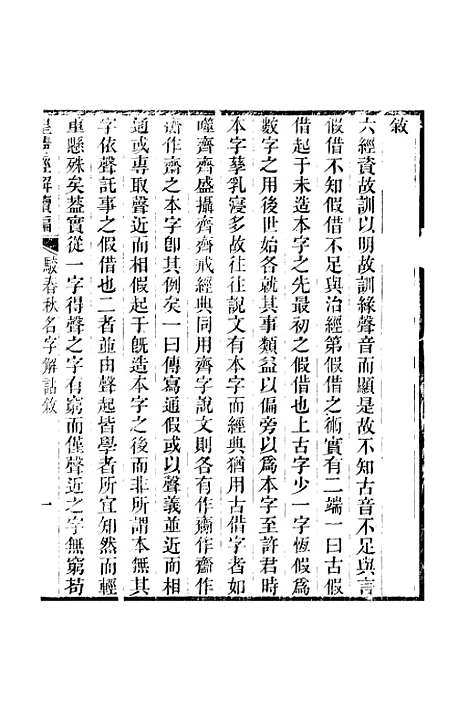 敘
六經資故訓以明故訓緣聲音而顯是故不知古音不足與言
假借不知假借不足與治經第假借之術實有二端一曰古假
借起于未造本字之先最初之假借也上古字少一字恆假爲
數字之用後世始各就其事類益以偏旁以爲本字至許君時
本字孳乳寖多故往往說文有本字而經典猶用古借字者如
噬齊齊盛攝齊齊戒經典同用齊字說文則各有作齌作齍作
作齋之本字卽其例矣一曰傳寫通假或以聲義並近而相
通或專取聲近而相假起于旣造本字之後而非所謂本無其
字依聲託事之假借也二者並由聲起皆學者所宜知然而輕
重懸殊矣葢實從一字得聲之字有窮而僅聲近之字無窮苟
皇淸經解續編
駮春秋名字解詁敘
一